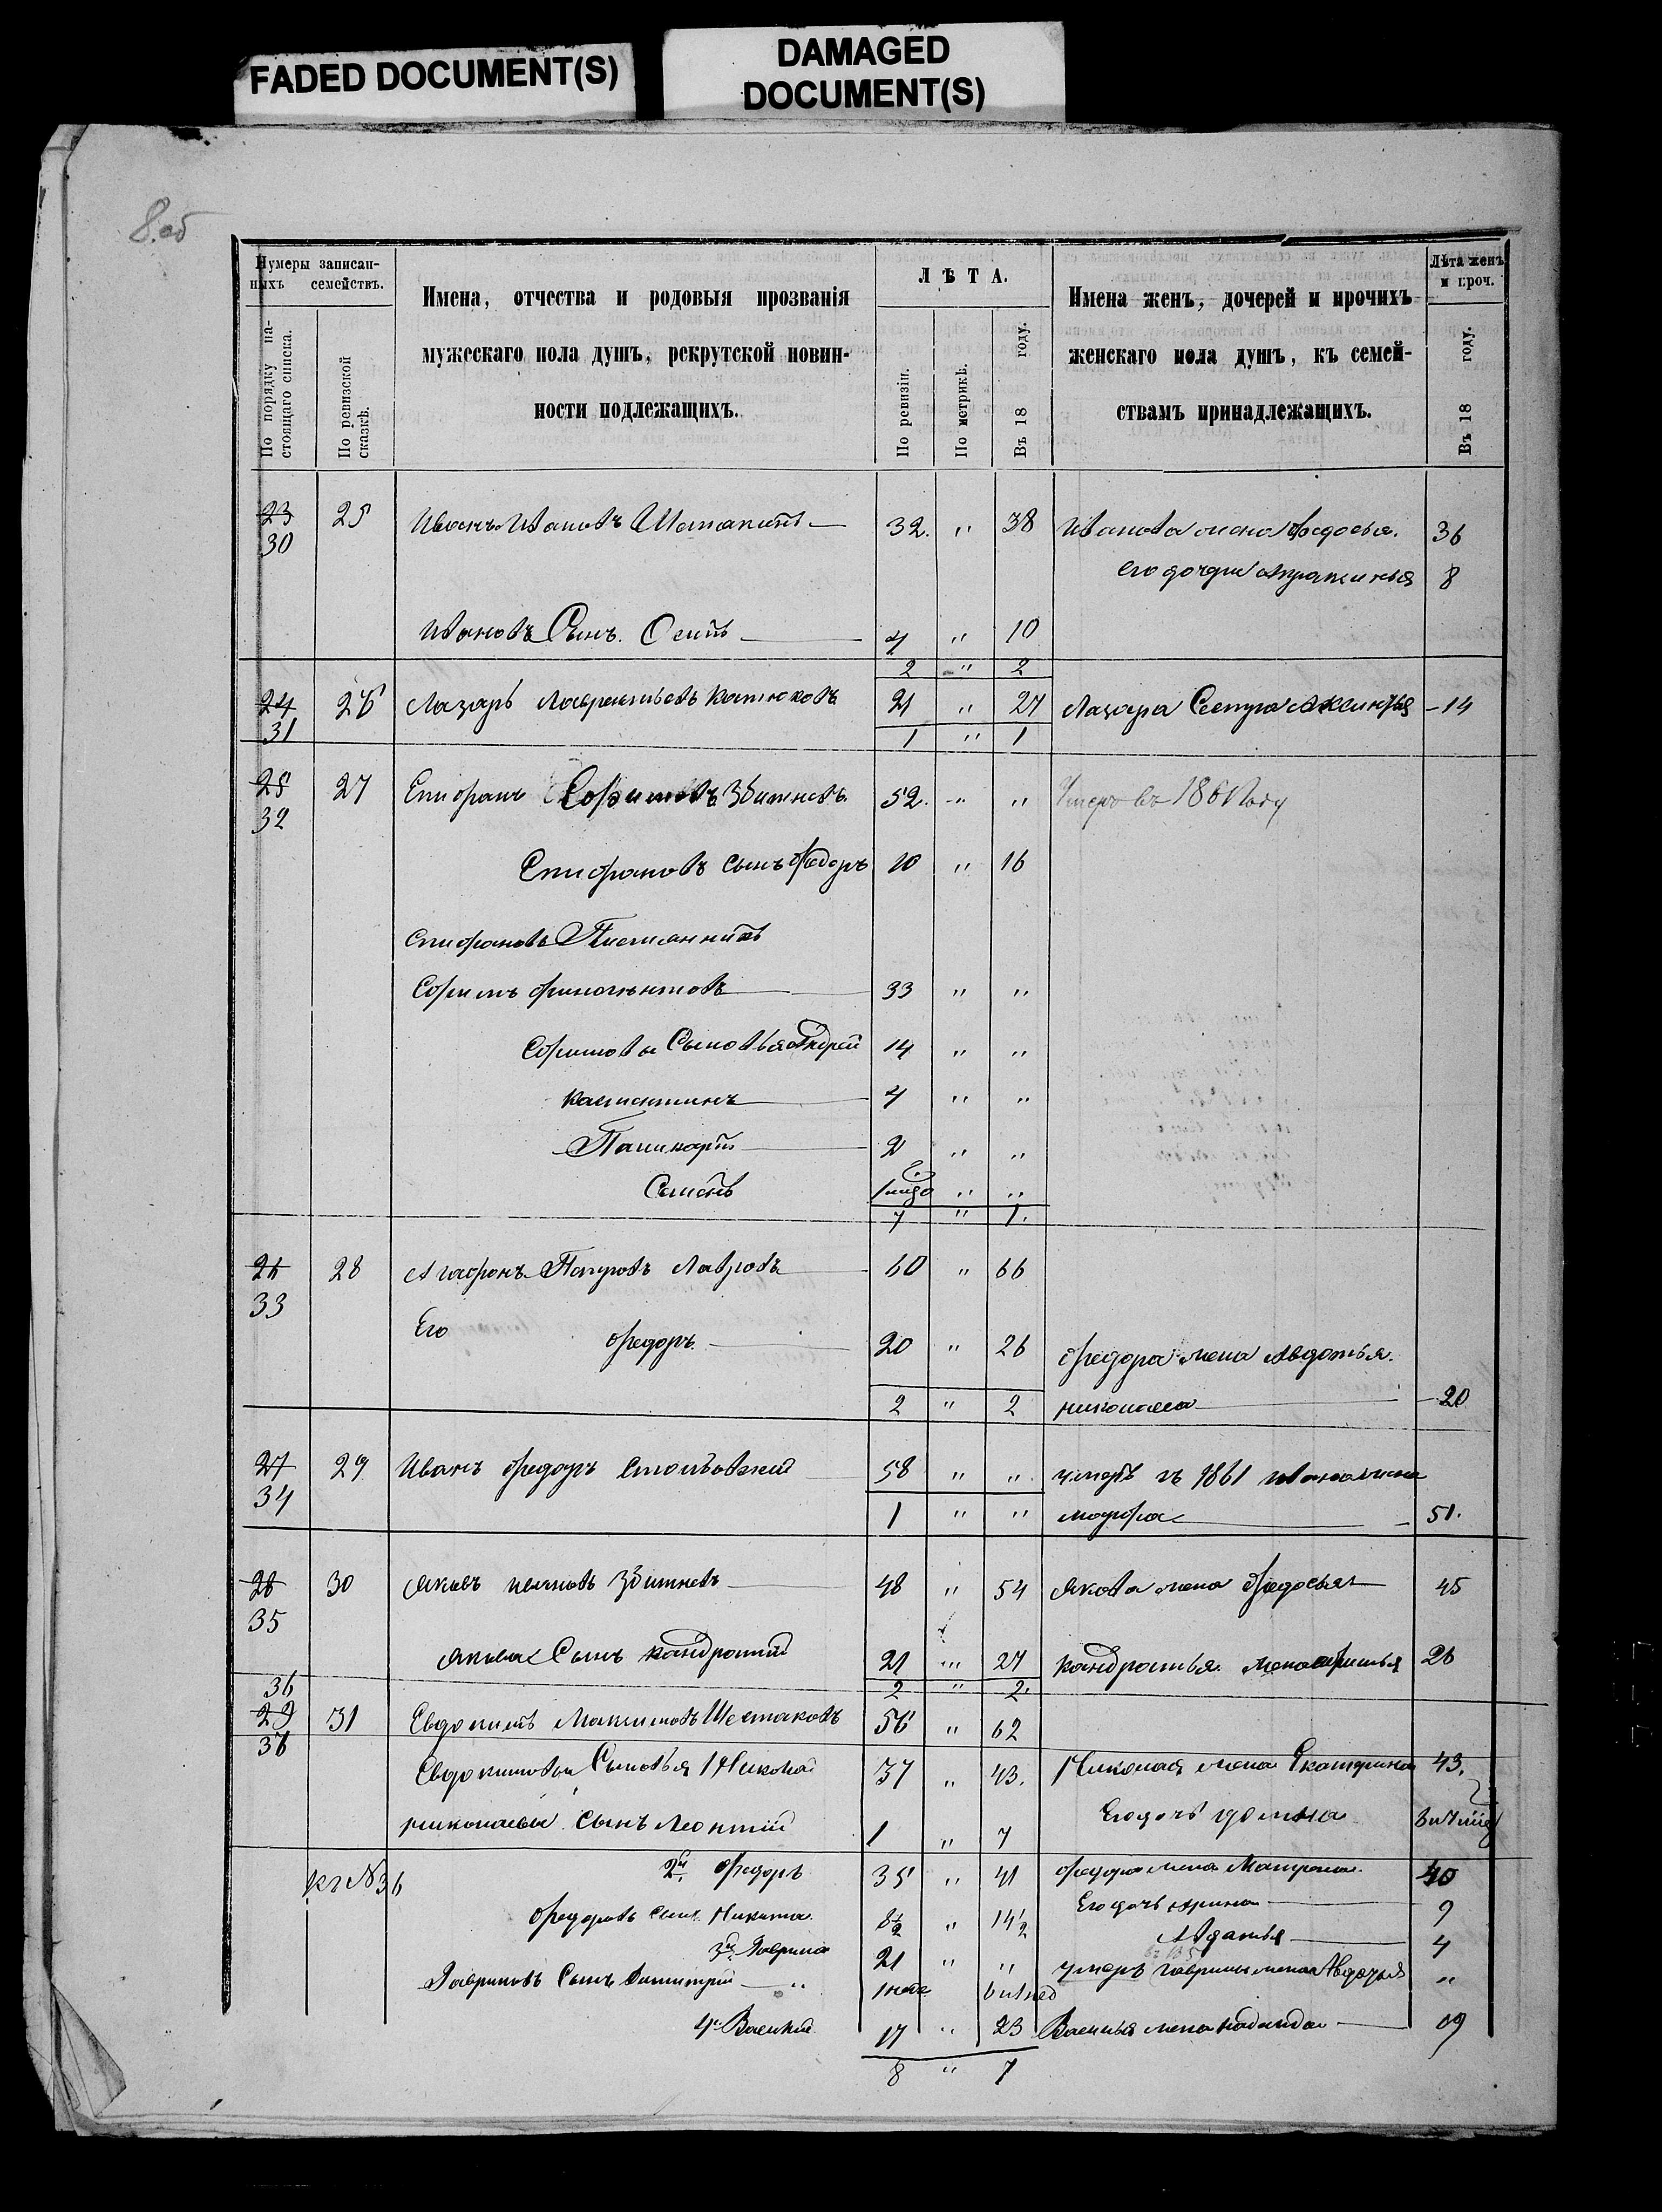 FADED DOCUMENT(S)
DAMAGED
DOCUMENT(S)
8.об
Нумеры записан-
ныхъ семействъ.
По порядку на-
стоящаго списка.
По ревизской
сказкѣ.
Имена, отчества и родовыя прозванія
мужескаго пола душъ, рекрутской повин-
ности подлежащихъ.
ЛѢТА.
По ревизіи.
По метрикѣ.
Въ 18 году.
Имена женъ, дочерей и прочихъ
женскаго пола душъ, къ семей-
ствамъ принадлежащихъ.
Лѣта женъ
и проч.
Въ 18 году.
23 25 Иванъ Ивановъ 32. " 38 Иванова жена Федосья. 36
30 его дочери 8
Ивановъ Сынъ. Осипъ 4 " 10
2 " 2
24 26 Лазарь Лаврентьевъ Катюковъ 21 " 27 Лазаря Сестра Аксинья 14
31 1 " 1
25 27 Епифанъ Ефимовъ Збитневъ 52. " " Умеръ въ 1861 году
32
Епифановъ сынъ Федоръ 10 " 16
Епифановъ Племянникъ
Ефимъ 33 " "
Ефимовы Сыновья Андрей 14 " "
Калистинъ 4 " "
Поликарпъ 2 " "
Семенъ " "
7 " 1.
26 28 Агафонъ Петровъ Лавровъ 60 " 66
33
Его Федоръ 20 " 26 Федора жена Авдотья.
2 " 2 Николаева 20
27 29 Иванъ Федоръ 58 " " умеръ въ 1861 Ивана жена
34 1 " " Марфа 51.
28 30 Яковъ Ивановъ Збитневъ 48 " 54 Якова жена Федосья 45
35
Якова Сынъ Кондратий 21 " 27 Кондратья жена 26
36 2 " 2.
29 31 Евдокимъ Максимовъ Шестаковъ 56 " 62
36
Евдокимовы Сыновья 1 Николай 37 " 43. Николая жена Екатерина 43.
Николаевы сынъ Леонтий 1 " 7 Его дочь Домна
къ №36 2й Федоръ 35 " 41 Федора жена Матрона 40
Федоровъ сынъ Никита 8½ " 14½ Его дочь Арина 9
Авдотья 4
3й Гаврила 21 " " умеръ Гаврилы жена Авдотья "
Гавриловъ Сынъ Димитрий
4й Василий 17 " 23 Василья жена 19
8 " 7